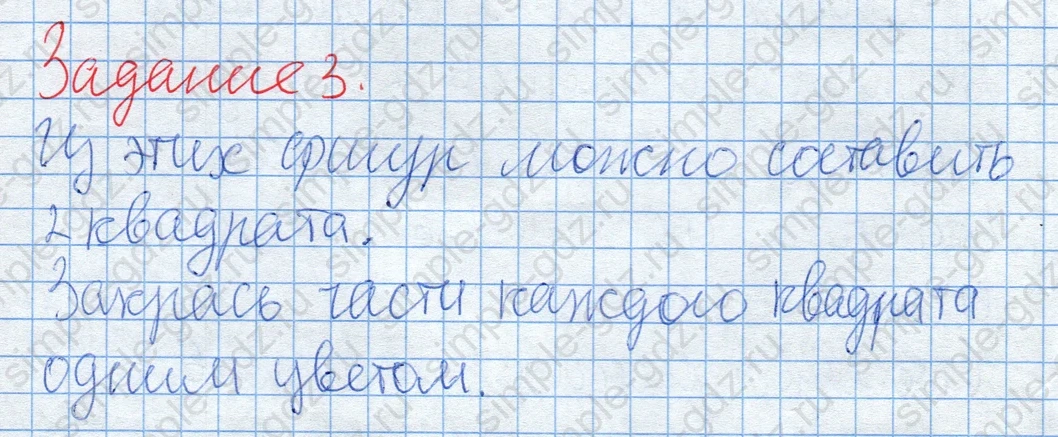 Задание 3.
Из этих фигур можно составить
2 квадрата.
Закрась части каждого квадрата
одним цветом.
simple-gdz.ru